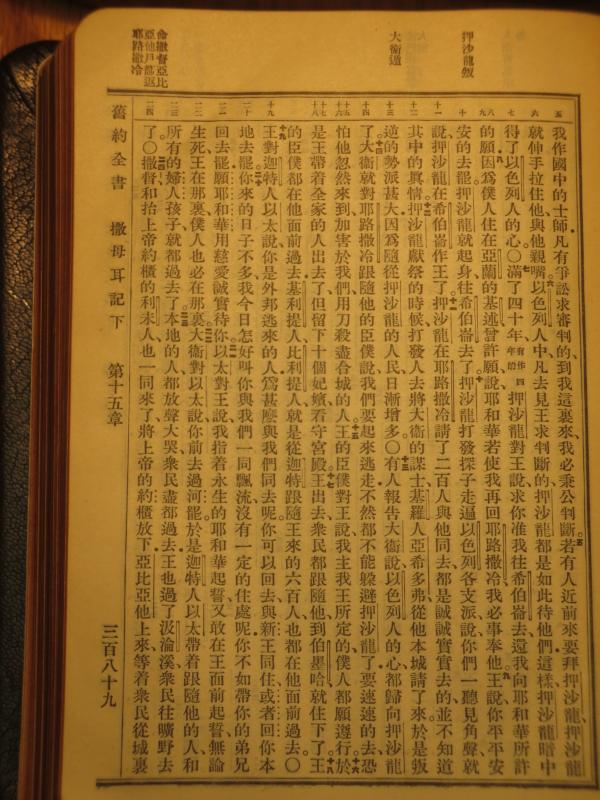 押沙龍叛
大衞逃
命撒督亞比
亞他戶篩返
耶路撒冷
五 六 七 八 九 十 十一 十二 十三 十四 十五 十六 十七 十八 十九 二十 二一 二二 二三 二四
我作國中的士師凡有爭訟求審判的到我這裏來我必秉公判斷五若有人近前來要拜押沙龍押沙龍
就伸手拉住他與他親嘴六以色列人中凡去見王求判斷的押沙龍都是如此待他們這樣押沙龍暗中
得了以色列人的心〇七滿了四十年有作四年的押沙龍對王說求你准我往希伯崙去還我向耶和華所許
的願八因爲僕人住在亞蘭的基述曾許願說耶和華若使我再回耶路撒冷我必事奉他九王說你平平安
安的去罷押沙龍就起身往希伯崙去了十押沙龍打發探子走遍以色列各支派說你們一聽見角聲就
說押沙龍在希伯崙作王了十一押沙龍在耶路撒冷請了二百人與他同去都是誠誠實實去的並不知道
其中的眞情十二押沙龍獻祭的時候打發人去將大衞的謀士基羅人亞希多弗從他本城請了來於是叛
逆的勢派甚大因爲隨從押沙龍的人民日漸增多〇十三有人報告大衞說以色列人的心都歸向押沙龍
了十四大衞就對耶路撒冷跟隨他的臣僕說我們要起來逃走不然都不能躱避押沙龍了要速速的去恐
怕他忽然來到加害於我們用刀殺盡合城的人十五王的臣僕對王說我主我王所定的僕人都願遵行十六於
是王帶着全家的人出去了但留下十個妃嬪看守宮殿十七王出去衆民都跟隨他到伯墨哈就住下了十八王
的臣僕都在他面前過去基利提人比利提人就是從迦特跟隨王來的六百人也都在他面前過去〇
十九王對迦特人以太說你是外邦逃來的人爲甚麼與我們同去呢你可以回去與新王同住或者回你本
地去罷二十你來的日子不多我今日怎好叫你與我們一同飄流沒有一定的住處呢你不如帶你的弟兄
回去罷願耶和華用慈愛誠實待你二一以太對王說我指着永生的耶和華起誓又敢在王面前起誓無論
生死王在那裏僕人也必在那裏二二大衞對以太說你前去過河罷於是迦特人以太帶着跟隨他的人和
所有的婦人孩子就都過去了二三本地的人都放聲大哭衆民盡都過去王也過了汲淪溪衆民往曠野去
了〇二四撒督和抬上帝約櫃的利未人也一同來了將上帝的約櫃放下亞比亞他上來等着衆民從城裏
舊約全書 撒母耳記下 第十五章 三百八十九